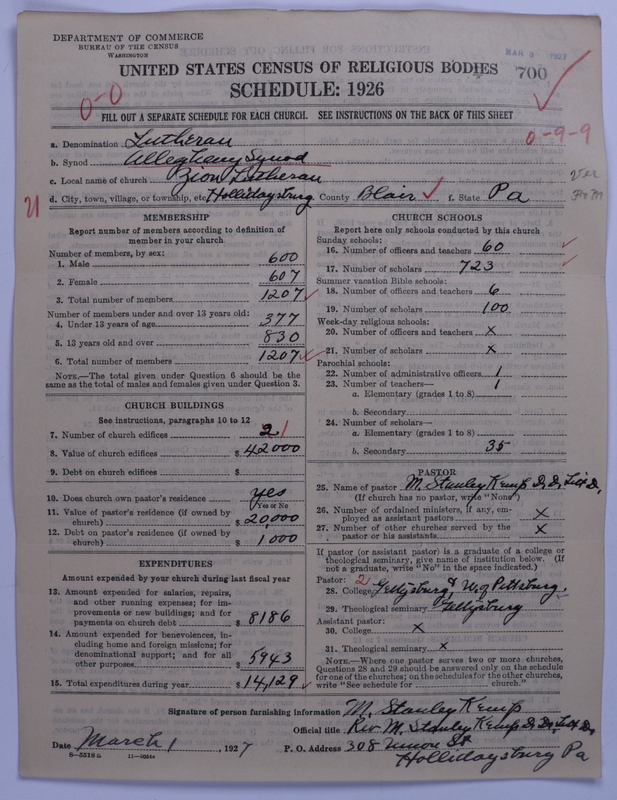 DEPARTMENT OF COMMERCE
BUREAU OF THE CENSUS
WASHINGTON
UNITED STATES CENSUS OF RELIGIOUS BODIES
SCHEDULE: 1926
700
0-0
FILL OUT A SEPARATE SCHEDULE FOR EACH CHURCH. SEE INSTRUCTIONS ON THE BACK OF THIS SHEET
0-9-9
a. Denomination Lutheran
b. Synod Allegheny Synod
c. Local name of church Zion Lutheran
d. City, town, village, or township, etc. Hollidaysburg County Blair f. State Pa
MEMBERSHIP
Report number of members according to definition of
member in your church
Number of members, by sex:
1. Male 600
2. Female 607
3. Total number of members 1207
Number of members under and over 13 years old:
4. Under 13 years of age 377
5. 13 years old and over 830
6. Total number of members 1207
NOTE.—The total given under Question 6 should be the
same as the total of males and females given under Question 3.
CHURCH BUILDINGS
See instructions, paragraphs 10 to 12
7. Number of church edifices 2 1
8. Value of church edifices $ 42000
9. Debt on church edifices $
10. Does church own pastor's residence yes
Yes or No
11. Value of pastor's residence (if owned by
church) $ 20,000
12. Debt on pastor's residence (if owned by
church) $ 1,000
EXPENDITURES
Amount expended by your church during last fiscal year
13. Amount expended for salaries, repairs,
and other running expenses; for im-
provements or new buildings; and for
payments on church debt $ 8186
14. Amount expended for benevolences, in-
cluding home and foreign missions; for
denominational support; and for all
other purposes $ 5943
15. Total expenditures during year $ 14,129
CHURCH SCHOOLS
Report here only schools conducted by this church
Sunday schools:
16. Number of officers and teachers 60
17. Number of scholars 723
Summer vacation Bible schools:
18. Number of officers and teachers 6
19. Number of scholars 100
Week-day religious schools:
20. Number of officers and teachers x
21. Number of scholars x
Parochial schools:
22. Number of administrative officers 1
23. Number of teachers— 1
a. Elementary (grades 1 to 8)
b. Secondary
24. Number of scholars—
a. Elementary (grades 1 to 8)
b. Secondary 35
PASTOR
25. Name of pastor M. Stanley Kemp D.D. Litt D.
(If church has no pastor, write "None")
26. Number of ordained ministers, if any, em-
ployed as assistant pastors x
27. Number of other churches served by the
pastor or his assistants x
If pastor (or assistant pastor) is a graduate of a college or
theological seminary, give name of institution below. (If
not a graduate, write "No" in the space indicated.)
Pastor: 2
28. College Gettysburg & U of Pittsburg.
29. Theological seminary Gettysburg
Assistant pastor:
30. College x
31. Theological seminary x
NOTE.—Where one pastor serves two or more churches,
Questions 28 and 29 should be answered only on the schedule
for one of the churches; on the schedules for the other churches,
write "See schedule for church."
Signature of person furnishing information M. Stanley Kemp
Official title Rev. M. Stanley Kemp D.D. Litt D.
Date March 1, 1927 P. O. Address 308 Union St
8-5518a 11-9064a Hollidaysburg Pa